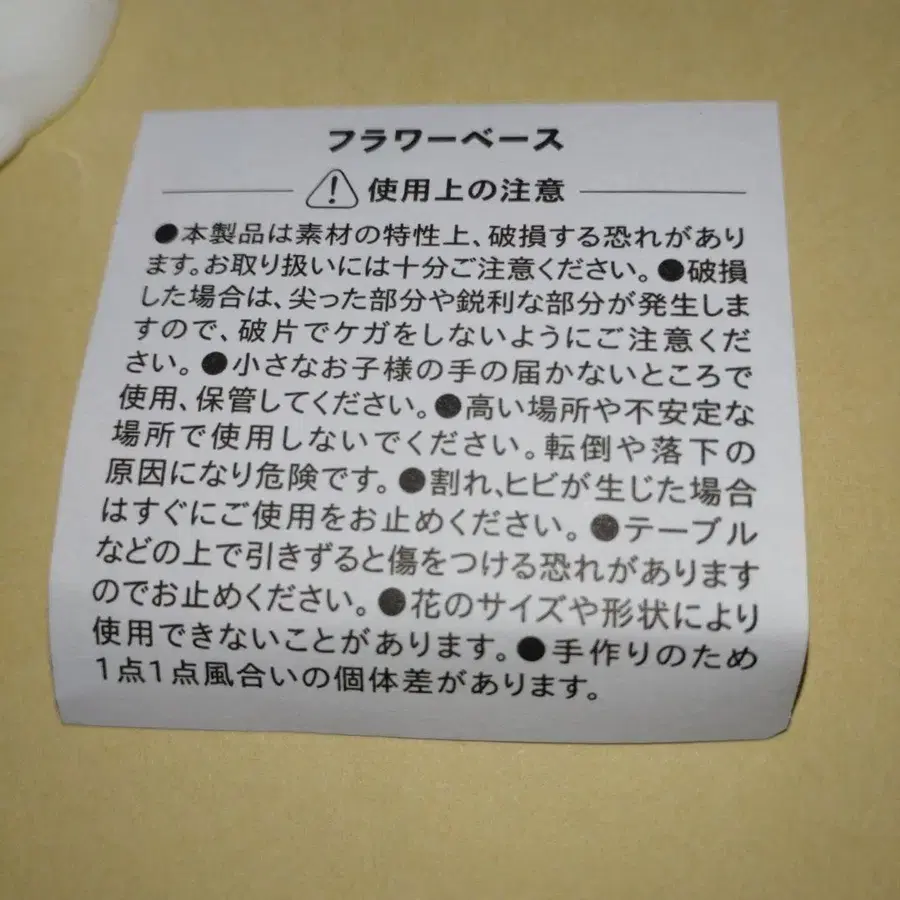 フラワーベース
⚠使用上の注意
●本製品は素材の特性上、破損する恐れがあり
ます。お取り扱いには十分ご注意ください。●破損
した場合は、尖った部分や鋭利な部分が発生しま
すので、破片でケガをしないようにご注意くだ
さい。●小さなお子様の手の届かないところで
使用、保管してください。●高い場所や不安定な
場所で使用しないでください。転倒や落下の
原因になり危険です。●割れ、ヒビが生じた場合
はすぐにご使用をお止めください。●テーブル
などの上で引きずると傷をつける恐れがあります
のでお止めください。●花のサイズや形状により
使用できないことがあります。●手作りのため
1点1点風合いの個体差があります。